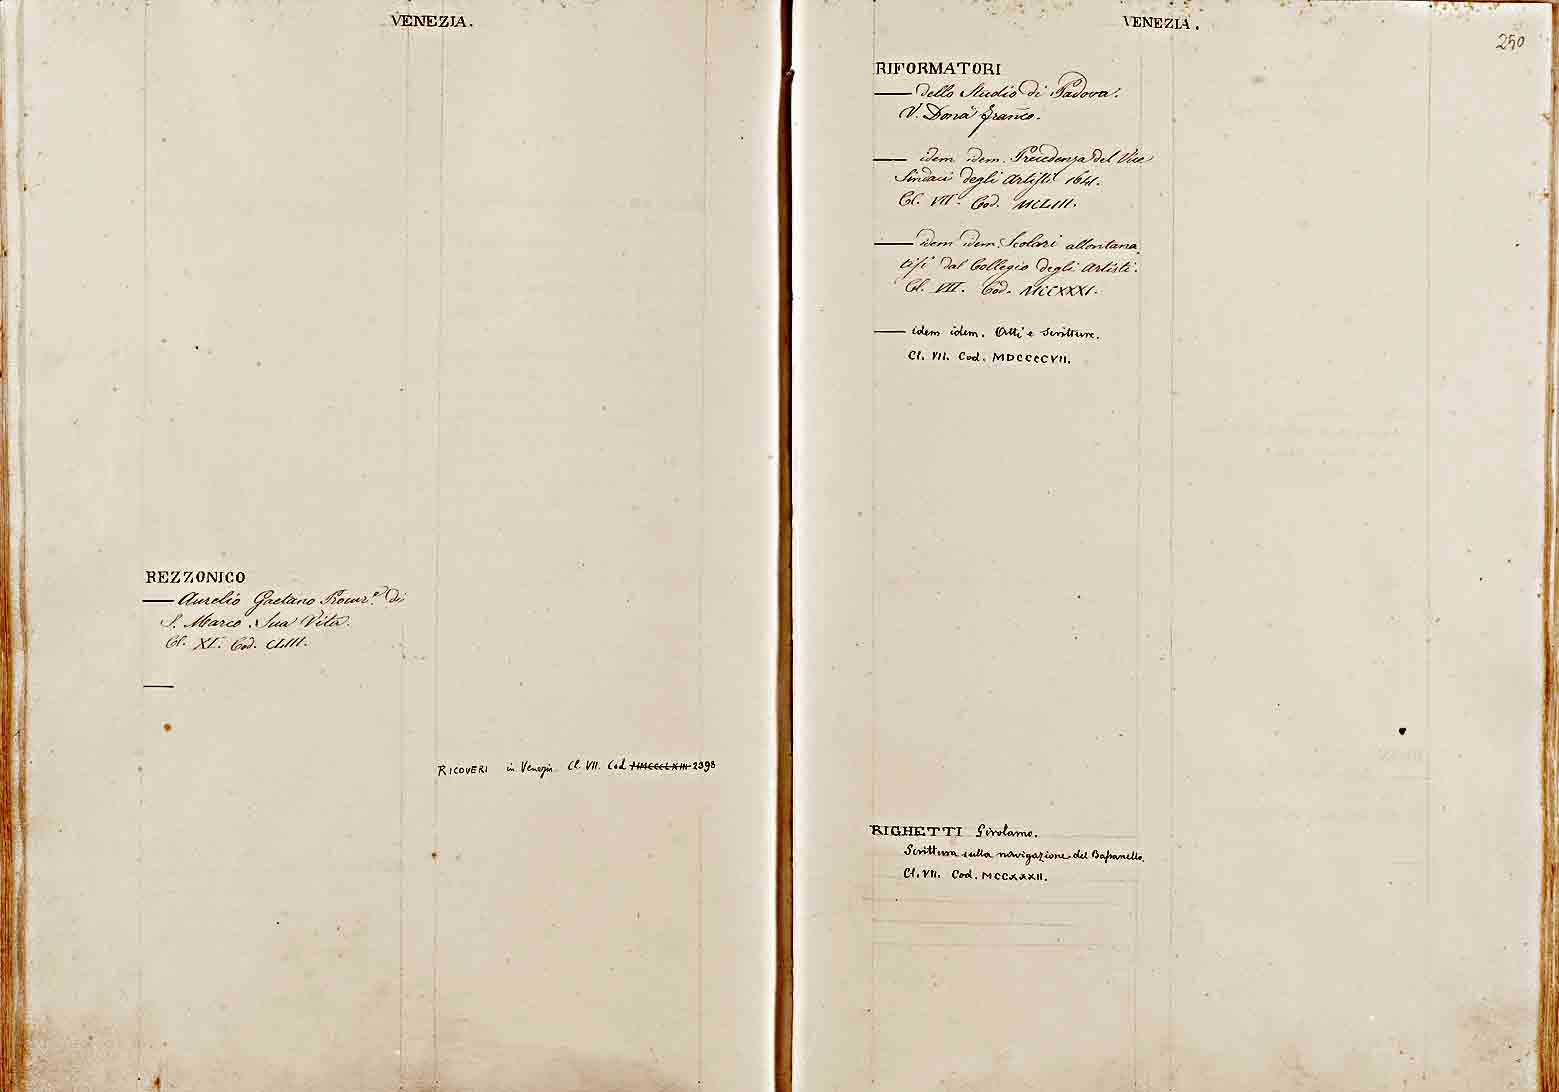 VENEZIA.
REZZONICO
— Aurelio Gaetano Procur.e di
S. Marco. Sua Vita.
Cl. XI. Cod. CLIII.
—
RICOVERI in Venezia Cl. VII. Cod. 2398
VENEZIA.
250
RIFORMATORI
— dello Studio di Padova.
V. Donà Franco.
— idem idem. Precedenza del Vice
Sindaci degli Artisti 1641.
Cl. VII. Cod. MCLIII.
— idem idem. Scolari allontana
tisi dal Collegio degli Artisti.
Cl. VII. Cod. MCCXXXI.
— idem idem. Atti e Scritture.
Cl. VII. Cod. MDCCCCVII.
RIGHETTI Girolamo.
Scrittura sulla navigazione del Bassanello.
Cl. VII. Cod. MCCXXXII.